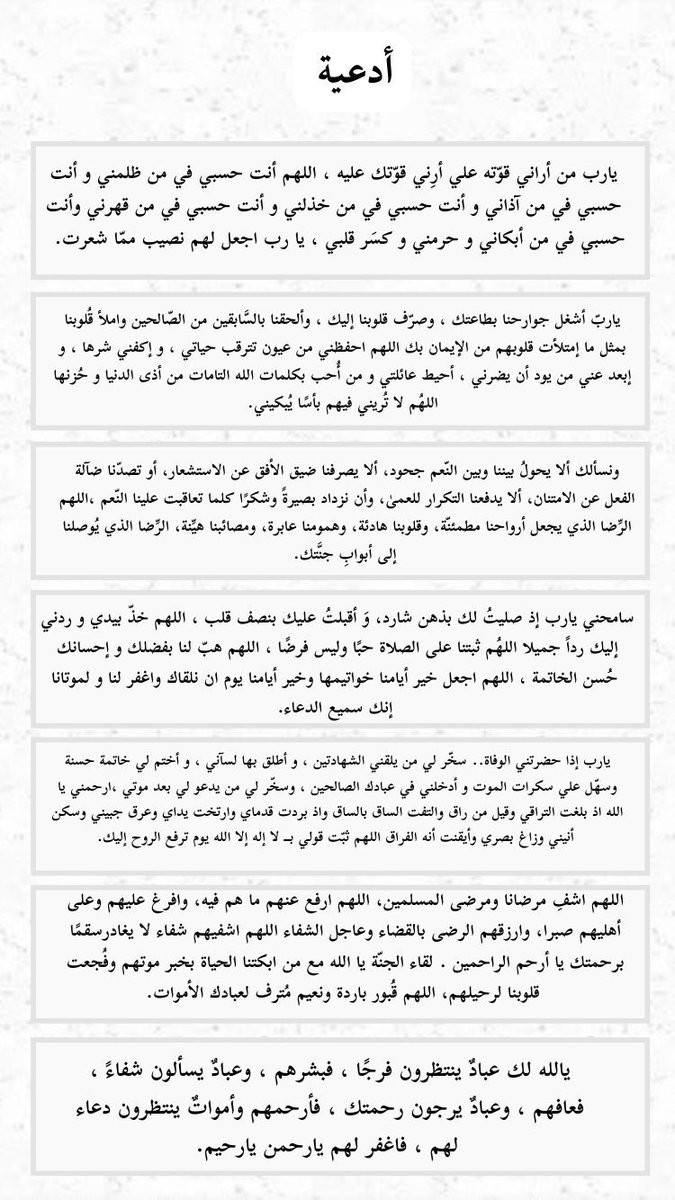 أدعية
يارب من أراني قوّته علي أرِني قوّتك عليه ، اللهم أنت حسبي في من ظلمني و أنت
حسبي في من آذاني و أنت حسبي في من خذلني و أنت حسبي في من قهرني وأنت
حسبي في من أبكاني و حرمني و كسَر قلبي ، يا رب اجعل لهم نصيب ممّا شعرت.
ياربّ أشغل جوارحنا بطاعتك ، وصرّف قلوبنا إليك ، وألحقنا بالسَّابقين من الصّالحين واملأ قُلوبنا
بمثل ما إمتلأت قلوبهم من الإيمان بك اللهم احفظني من عيون تترقب حياتي ، و إكفني شرها ، و
إبعد عني من يود أن يضرني ، أحيط عائلتي و من أُحب بكلمات الله التامات من أذى الدنيا و حُزنها
اللهُم لا تُريني فيهم بأسًا يُبكيني.
ونسألك ألا يحولُ بيننا وبين النّعم جحود، ألا يصرفنا ضيق الأفق عن الاستشعار، أو تصدّنا ضآلة
الفعل عن الامتنان، ألا يدفعنا التكرار للعمىٰ، وأن نزداد بصيرةً وشكرًا كلما تعاقبت علينا النّعم ،اللهم
الرِّضا الذي يجعل أرواحنا مطمئنّة، وقلوبنا هادئة، وهمومنا عابرة، ومصائبنا هيِّنة، الرِّضا الذي يُوصلنا
إلى أبوابِ جنَّتك.
سامحني يارب إذ صليتُ لك بذهن شارد، وَ أقبلتُ عليك بنصف قلب ، اللهم خذّ بيدي و ردني
إليك رداً جميلا اللهُم ثبتنا على الصلاة حبًا وليس فرضًا ، اللهم هبّ لنا بفضلك و إحسانك
حُسن الخاتمة ، اللهم اجعل خير أيامنا خواتيمها وخير أيامنا يوم ان نلقاك واغفر لنا و لموتانا
إنك سميع الدعاء.
يارب إذا حضرتني الوفاة.. سخّر لي من يلقني الشهادتين ، و أطلق بها لسآني ، و أختم لي خاتمة حسنة
وسهّل علي سكرات الموت و أدخلني في عبادك الصالحين ، وسخّر لي من يدعو لي بعد موتي ،ارحمني يا
الله اذ بلغت التراقي وقيل من راق والتفت الساق بالساق واذ بردت قدماي وارتخت يداي وعرق جبيني وسكن
أنيني وزاغ بصري وأيقنت أنه الفراق اللهم ثبّت قولي بـ لا إله إلا الله يوم ترفع الروح إليك.
اللهم اشفِ مرضانا ومرضى المسلمين، اللهم ارفع عنهم ما هم فيه، وافرغ عليهم وعلى
أهليهم صبرا، وارزقهم الرضى بالقضاء وعاجل الشفاء اللهم اشفيهم شفاء لا يغادرسقمًا
برحمتك يا أرحم الراحمين . لقاء الجنّة يا الله مع من ابكتنا الحياة بخبر موتهم وفُجعت
قلوبنا لرحيلهم، اللهم قُبور باردة ونعيم مُترف لعبادك الأموات.
يالله لك عبادٌ ينتظرون فرجًا ، فبشرهم ، وعبادٌ يسألون شفاءً ،
فعافهم ، وعبادٌ يرجون رحمتك ، فأرحمهم وأمواتٌ ينتظرون دعاء
لهم ، فاغفر لهم يارحمن يارحيم.